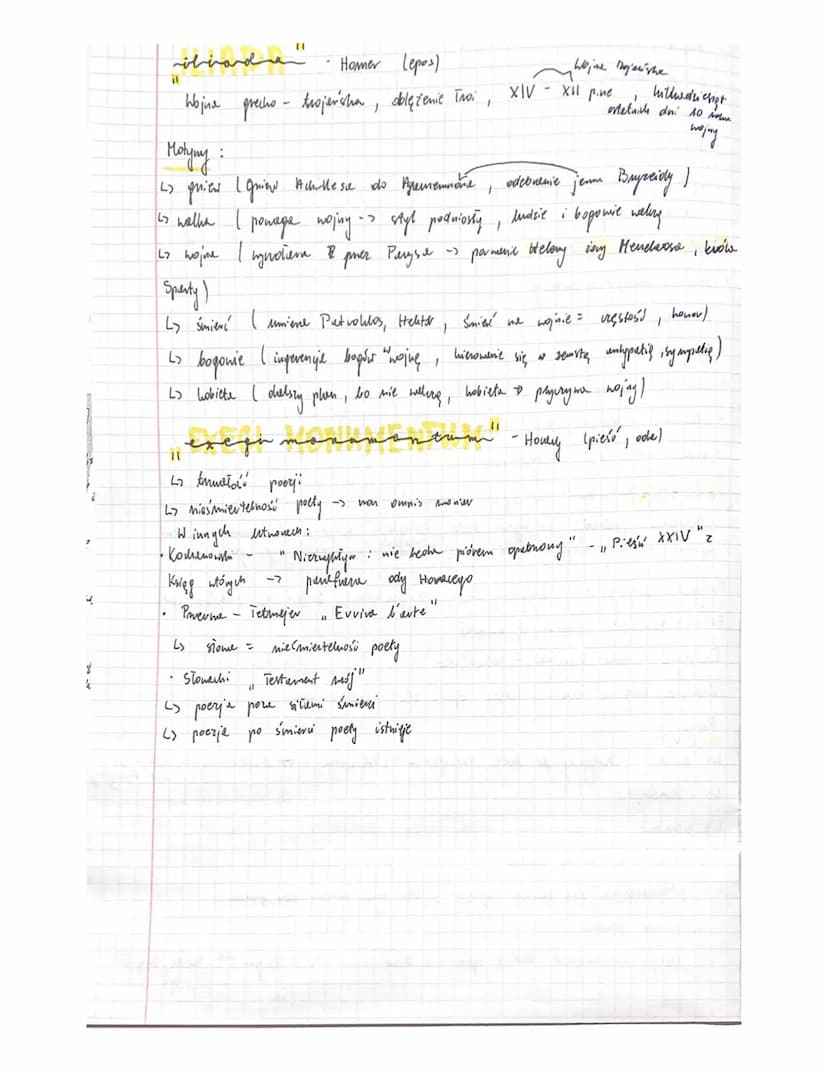 „iliada" - Homer (epos)
wojna trojańska
Wojna grecko - trojańska, oblężenie Troi, XIV - XII p.n.e, kilkadziesiąt
ostatnich dni 10 roku
wojny
Motywy:
↳ gniew (gniew Achillesa do Agamemnona, odebranie jemu Bryzeidy)
↳ walka (powaga wojny -> styl podniosły, ludzie i bogowie walczą
↳ wojna ( przez Parysa -> porwanie Heleny żony Menelaosa, króla
Sparty)
↳ śmierć (umiera Patroklos, Hektor, śmierć na wojnie = częstość, honor)
↳ bogowie (ingerencja bogów w wojnę, kierowanie się w zemstą, antypatią, sympatią)
↳ kobieta (dalszy plan, bo nie walczą, kobieta -> przyczyna wojny)
„exegi monumentum" - Horacy (pieśń, oda)
↳ trwałość poezji
↳ nieśmiertelność poety -> non omnis moriar
W innych utworach:
· Kochanowski - "Niezwykłym i nie leda piórem opatrzony" - „Pieśń XXIV" z
Ksiąg wtórych -> parafraza ody Horacego
· Przerwa - Tetmajer „Evviva l'arte"
↳ sława = nieśmiertelność poety
· Słowacki „Testament mój"
↳ poezja poza siłami śmierci
↳ poezja po śmierci poety istnieje